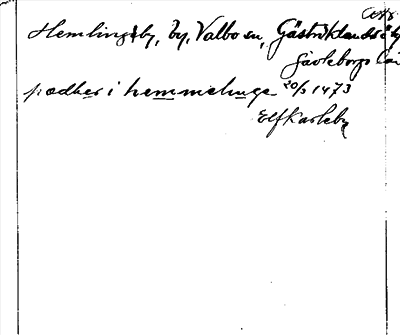 Hemlingby, by, Valbo sn, Gästriklands
Gävleborgs län
pædher i hemmelunge 20/3 1473
Elfkarleby